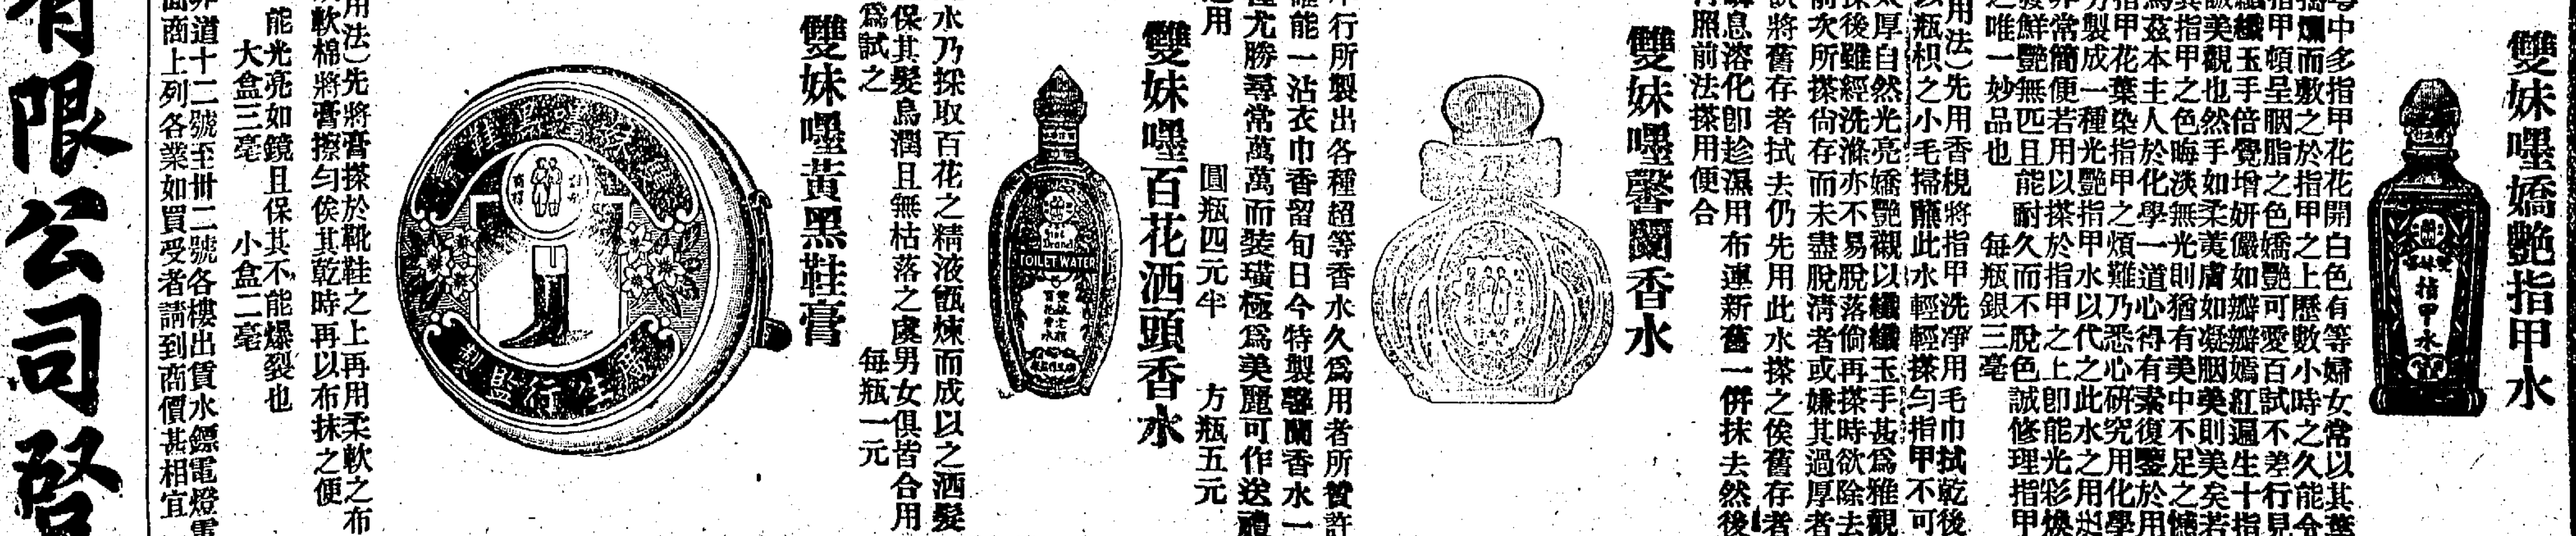 雙妹嚜嬌艷指甲水
雙妹嚜
指甲水
粵中多指甲花花開白色有等婦女常以其葉
搗爛而敷之於指甲之上歷數小時之久能令
指甲頓呈胭脂之色嬌艷可愛百試不差行見
纖纖玉手倍覺增妍儼如瓣瓣嫣紅遍生十指
誠美觀也然手如柔荑膚如凝胭美則美矣若
其指甲之色晦淡無光則猶有美中不足之憾
爲茲本主人於化學一道心得有素復鑒於用
指甲花葉染指甲之煩難乃悉心研究用化學
製成一種光艷指甲水以代之此水之用
非常簡便若用以搽於指甲之上卽能光彩煥
發鮮艷無匹且能耐久而不脫色誠修理指甲
之唯一妙品也　每瓶銀三毫
用法)先用香梘將指甲洗凈用毛巾拭乾後
以瓶枳之小毛掃蘸此水輕輕搽勻指甲不可
太厚自然光亮嬌艷觀以纖纖玉手甚爲雅觀
搽後雖經洗滌亦不易脫落倘再搽時欲除去
前次所搽尙存而未盡脫淸者或嫌其過厚者
欲將舊存者拭去仍先用此水搽之俟舊存者
瞬息溶化卽趁濕用布連新舊一併抹去然後
照前法搽用便合
雙妹嚜馨蘭香水
行所製出各種超等香水久爲用者所贊許
能一沾衣巾香留旬日今特製馨蘭香水一
種尤勝尋常萬萬而裝璜極爲美麗可作送禮
用　圓瓶四元半　方瓶五元
雙妹嚜百花洒頭香水
Brand
TOILET WATER
水乃採取百花之精液甑煉而成以之洒髮
保其髮烏潤且無枯落之虞男女俱皆合用
爲試之　每瓶一元
雙妹嚜黃黑鞋膏
商標
生行監製
用法)先將膏搽於靴鞋之上再用柔軟之布
軟棉將膏擦勻俟其乾時再以布抹之便
能光亮如鏡且保其不能爆裂也
大盒三毫　小盒二毫
道十二號至卅二號各樓出賃水鏢電燈電
面商上列各業如買受者請到商價甚相宜
有限公司啓